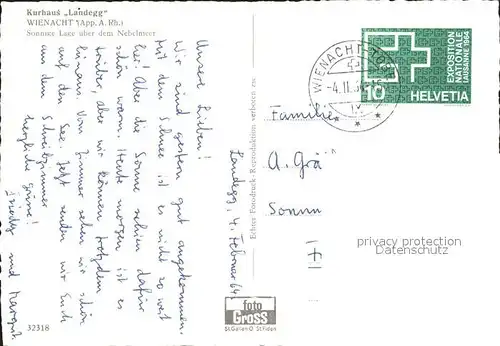 Kurhaus „Landegg"
WIENACHT (App. A. Rh.)
Sonnige Lage über dem Nebelmeer
Unsere Lieben!
Wir sind gestern gut angekommen.
Mit dem Schnee ist es nicht so weit
her! Aber die Sonne schien dafür
schön warm. Heute morgen ist es
trüber, aber wir können trotzdem
hinaus. Vom Zimmer sehn wir schön
auf den See. Jetzt senden wir Euch
aus dem Schreibzimmer
herzliche Grüsse!
und Margrit
32318
Echtes Fotodruck - Reproduktion verboten
foto
GROSS
St.Gallen O St.Fiden
Landegg, 4. Februar 64
WIENACHT-TOBEL
-4.II.64
EXPOSITION
NATIONALE
LAUSANNE 1964
10 HELVETIA
Familie
A. Grä
privacy protection
Datenschutz